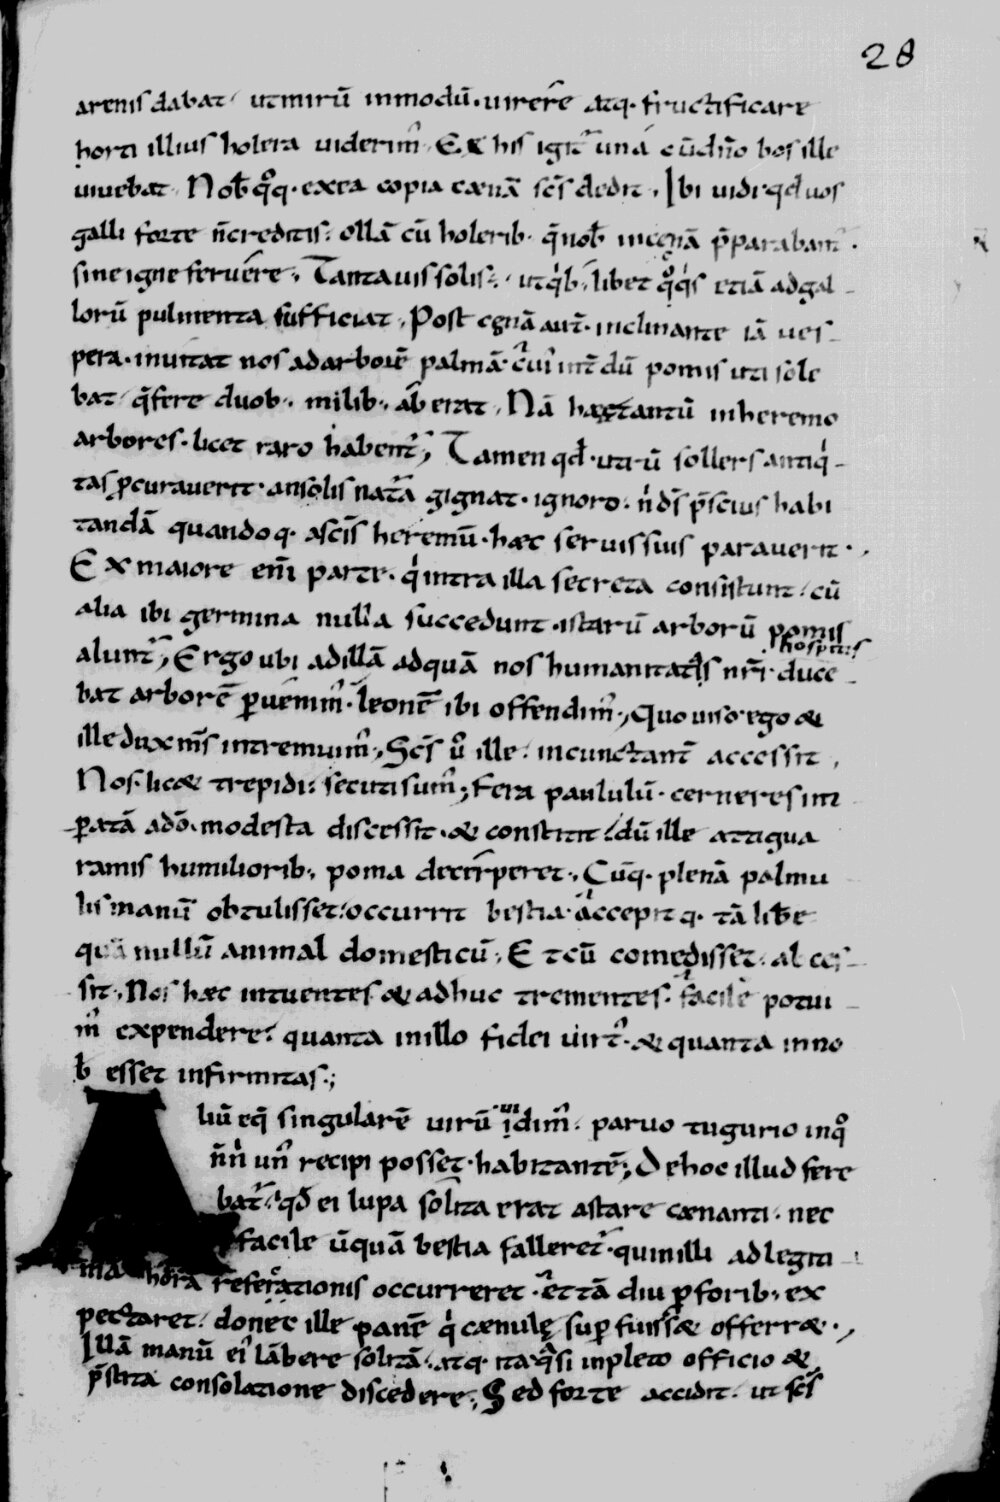 28
arenis dabat, ut mirū inmodū· virere atq· fructificare
horti illius holera viderim᷒. Ex his igit᷒ una cū dn̄o bos ille
vivebat. Nob̄ q̊q· ex ea copia cænā sc̄s dedit. Ibi vidi qd vos
galli forte n̄ creditis: ollā cū holerib· q̄ nob̄ in cęnā p̄parabant᷒·
sine igne fervere. Tanta vis solis:, ut qͥb· libet q̊qͥs etiā ad gal-
lorū pulmenta sufficiat. Post cęnā aut̄· inclinante iā ves-
pera· invitat nos ad arborē palmā· cui᷒ int̄dū pomis uti sole
bat, q̄ fere duob· milib· ab erat. Nā hæ tantū in heremo
arbores· licet raro habent᷒; Tamen qd· utrū sollers antiqͥ-
tas ꝓcuraverit· an solis nat᷒a gignat· ignoro· ń ds̄ p̄scius habi
tandā quandoq· a sc̄is heremū· hæc servis suis paraverit·,
Ex maiore en̄i parte· qͥ intra illa secreta consistunt, cū
alia ibi germina nulla succedunt· istarū arborū pomis
alunt᷒; Ergo ubi ad illā ad quā nos humanitatis hospitis nr̄i duce-
bat arborē ꝑvenim᷒· leonē ibi offendim᷒; Quo viso· ego &
ille dux m̄s intremuim᷒; Sc̄s v̊ ille· incunctant̄ accessit,
Nos· lic& trepidi: secuti sum᷒; Fera paululū· cerneres im
ꝑatā a dō· modesta discessit· & constitit, dū ille attigua
ramis humiliorib· poma decerperet. Cūq· plenā palmu
lis manū obtulisset: occurrit bestia· accepitq· tā libe
quā nullū animal domesticū. Et cū comedisset· abces-
sit. Nos hæc intuentes & adhuc trementes· facile potui-
m᷒ expendere: quanta in illo fidei virt᷒· & quanta in no
b̄ esset infirmitas·;
Aliū eq̄ singularē virū vidim᷒· parvo tugurio in q̊
n̄ń un᷒ recipi posset· habitantē; De hoc illud fere
bat᷒: qd ei lupa solita erat astare cænanti· nec
facile ūquā bestia falleret᷒· quin illi ad legiti-
ma hora refectionis occurreret· et tā diu ꝓ forib· ex
pectaret· donec ille panē qͥ cænulę suꝑ fuiss& offerr&·,
Illā manū ei᷒ lābere solitā· atq· ita q̄si inpleto officio &
p̄stita consolatione discedere; Sed forte accidit· ut sc̄s